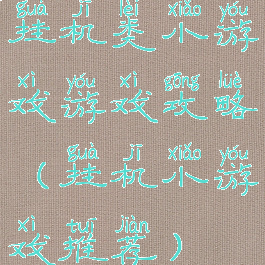 guà jī lèi xiǎo yóu
挂机类小游
xì yóu xì gōng lüè
戏游戏攻略
guà jī xiǎo yóu
（挂机小游
xì tuī jiàn
戏推荐）